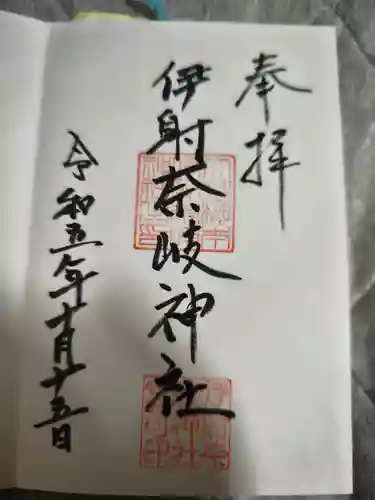 奉拝
伊射奈岐神社
令和五年十月十五日